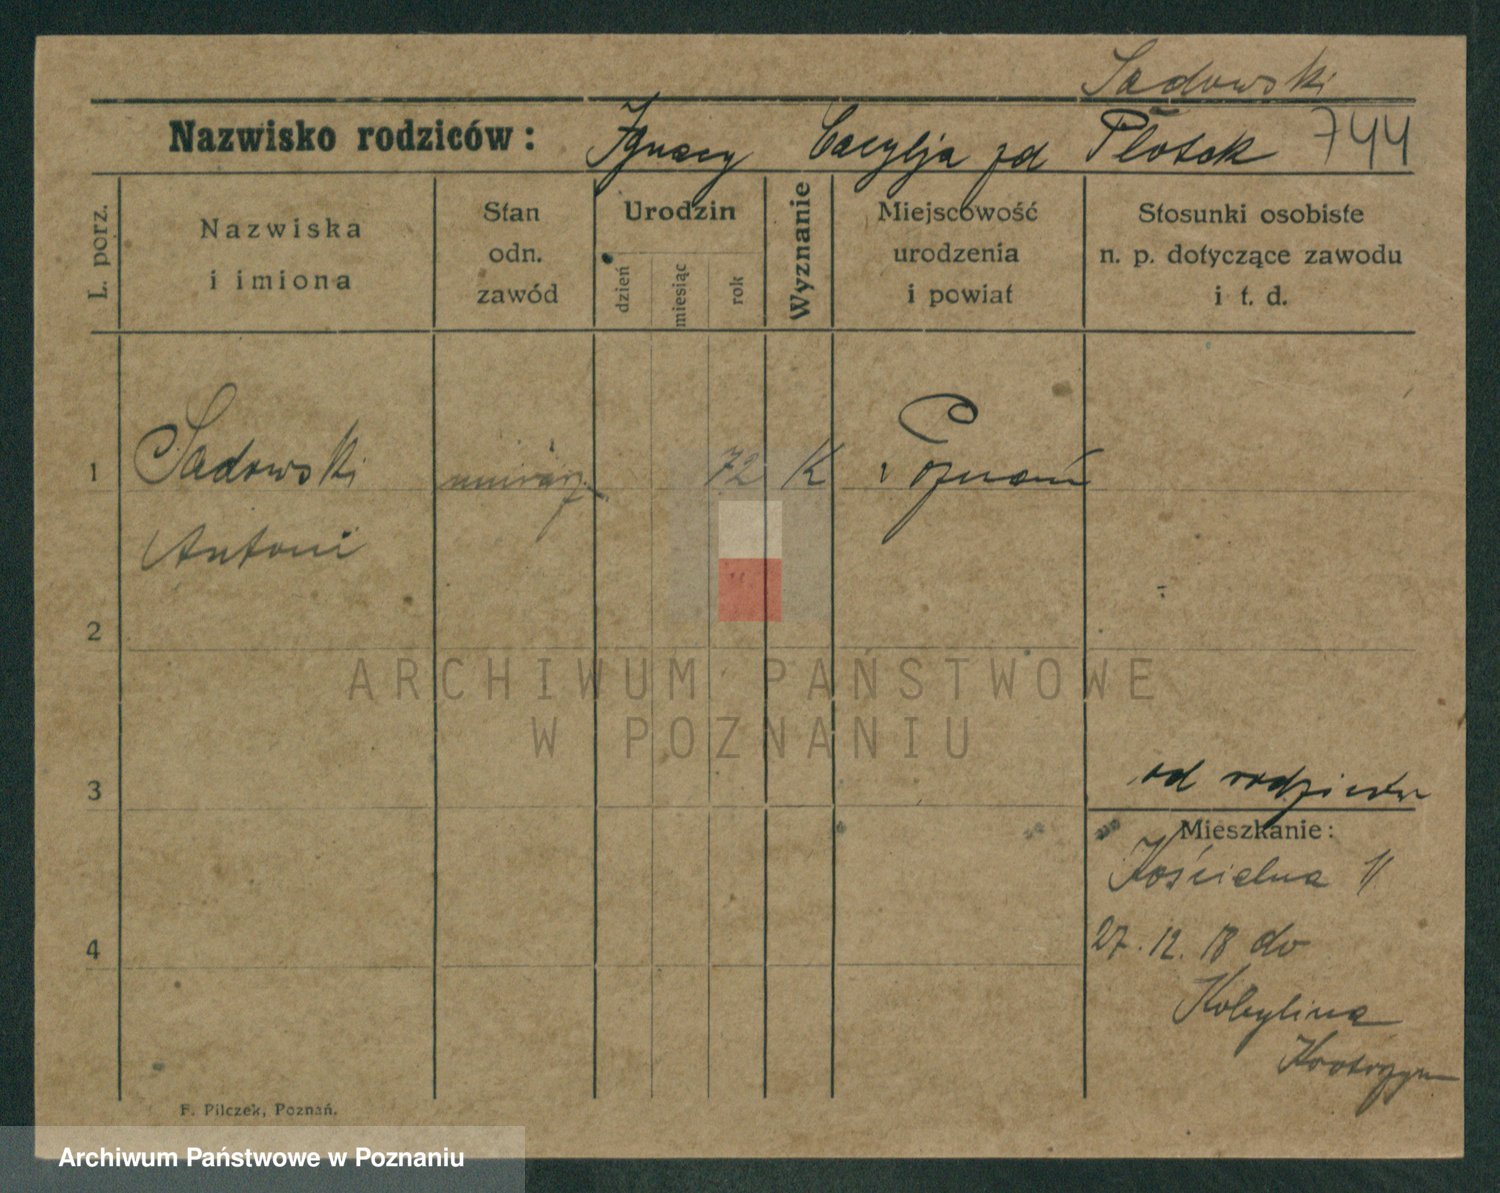 Sadowski
Nazwisko rodziców: Ignacy Cacylja zd Plotek 744
L. porz.
Nazwiska
i imiona
Stan
odn.
zawód
Urodzin
dzień
miesiąc
rok
Wyznanie
Miejscowość
urodzenia
i powiat
Stosunki osobiste
n. p. dotyczące zawodu
i t. d.
1 Sadowski 72 K Poznań
Antoni
2
ARCHIWUM PAŃSTWOWE
W POZNANIU
od rodziców
3
Mieszkanie:
Kościelna 11
27. 12. 18 do
4
Kobylina
F. Pilczek, Poznań.
Archiwum Państwowe w Poznaniu